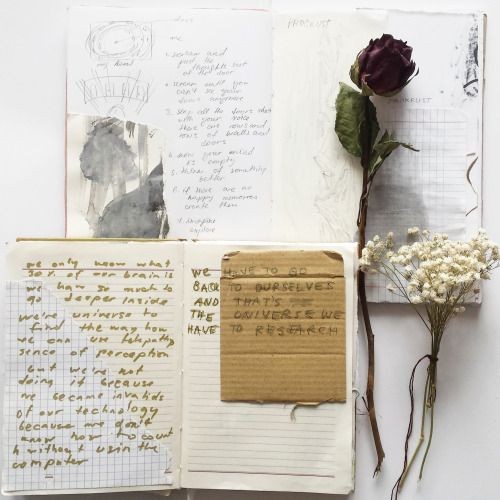 me
my head
1. scream and
push the
thoughts out
of the door
2. scream until you
can't see your
doors anymore
3. all the doors shut
with your voice
there are rows and
rows of walls and
doors
4. now your mind
is empty
5. think of something
better
6. if there are no
happy memories
create them
7. imagine
explore
we only know what
30% of our brain is
we have so much to
go deeper inside
we're universe to
find the way how
we can use telepathy
sence of perception
but we're not
doing it because
we became invalids
of our technology
because we don't
know how to count
without using the
computer
WE HAVE TO GO
BACK TO OURSELVES
AND THAT'S
THE UNIVERSE WE
HAVE TO RESEARCH